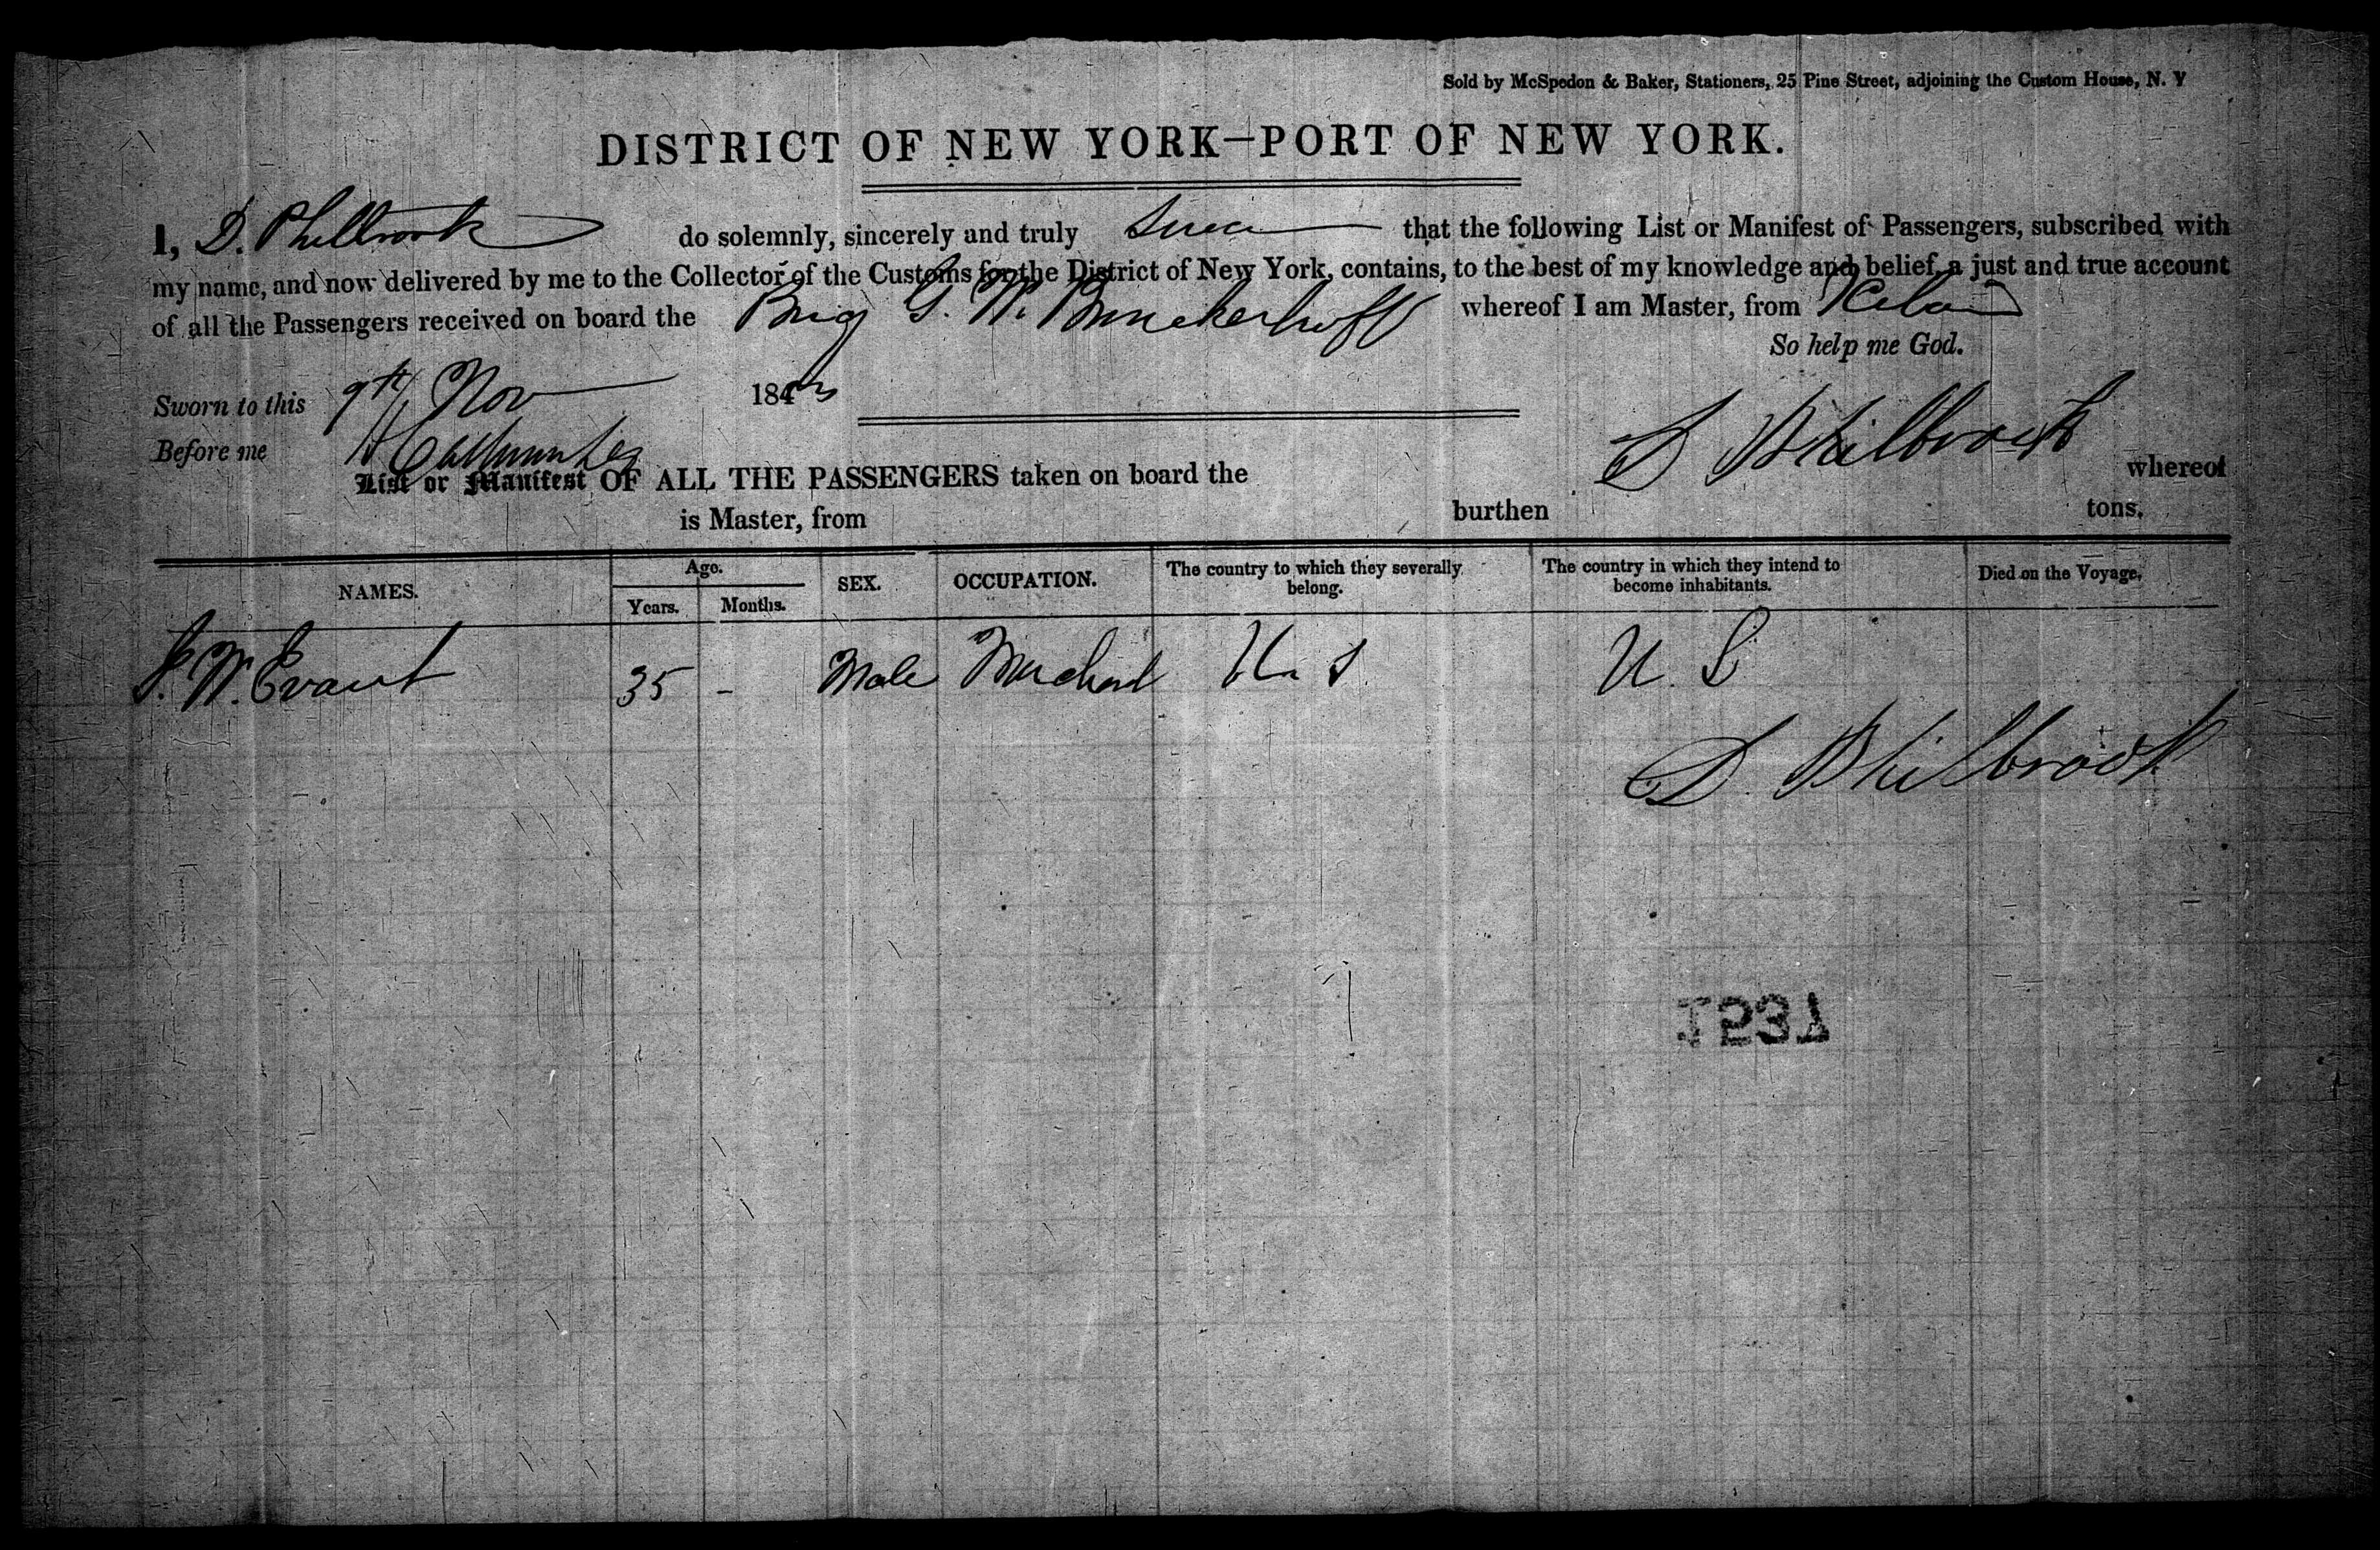 Sold by McSpedon & Baker, Stationers, 25 Pine Street, adjoining the Custom House, N. Y
DISTRICT OF NEW YORK—PORT OF NEW YORK.
I, D. Philbrook do solemnly, sincerely and truly swear that the following List or Manifest of Passengers, subscribed with
my name, and now delivered by me to the Collector of the Customs for the District of New York, contains, to the best of my knowledge and belief, a just and true account
of all the Passengers received on board the Brig G. W. Brinckerhoff whereof I am Master, from
So help me God.
Sworn to this 9th Nov 184
Before me
D Philbrook
List or Manifest OF ALL THE PASSENGERS taken on board the whereof
is Master, from burthen tons.
NAMES. Age. Years. Months. SEX. OCCUPATION. The country to which they severally belong. The country in which they intend to become inhabitants. Died on the Voyage.
J. W. Evant 35 - Male Merchant U. S. U. S
D. Philbrook